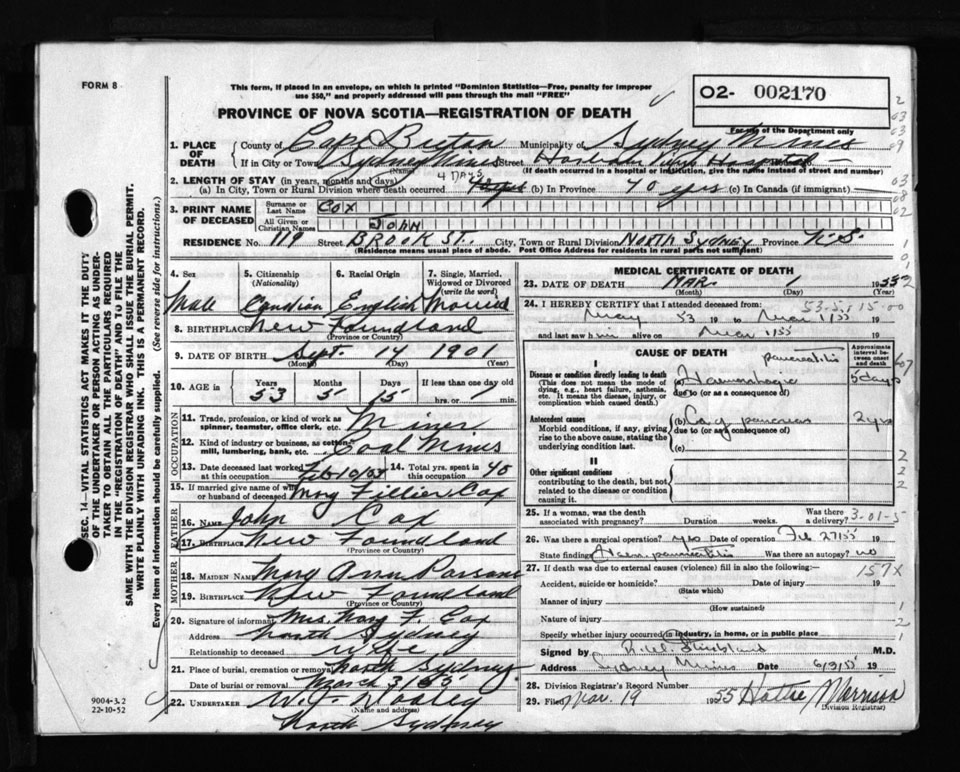 FORM 8
This form, if placed in an envelope, on which is printed "Dominion Statistics—Free, penalty for improper
use $50," and properly addressed will pass through the mail "FREE"
PROVINCE OF NOVA SCOTIA—REGISTRATION OF DEATH
02- 002170
For use of the Department only
1. PLACE OF DEATH
County of Cape Breton Municipality of Sydney Mines
If in City or Town Sydney Mines Street Hospital
(Name) (If death occurred in a hospital or institution, give the name instead of street and number)
2. LENGTH OF STAY (in years, months and days) 4 DAYS
(a) In City, Town or Rural Division where death occurred (b) In Province 40 yrs (c) In Canada (if immigrant)
3. PRINT NAME OF DECEASED
Surname or Last Name COX
All Given or Christian Names JOHN
RESIDENCE No. 119 Street BROOK ST. City, Town or Rural Division NORTH SYDNEY Province N.S.
(Residence means usual place of abode. Post Office Address for residents in rural parts not sufficient)
4. Sex
Male
5. Citizenship (Nationality)
Candian
6. Racial Origin
English
7. Single, Married, Widowed or Divorced (write the word)
Married
8. BIRTHPLACE New Foundland
(Province or Country)
9. DATE OF BIRTH Sept. 14 1901
(Month) (Day) (Year)
10. AGE in Years Months Days If less than one day old
53 5 15 hrs. or min.
OCCUPATION
11. Trade, profession, or kind of work as spinner, teamster, office clerk, etc. Miner
12. Kind of industry or business, as cotton mill, lumbering, bank, etc. Coal Mines
13. Date deceased last worked at this occupation Feb 10/55 14. Total yrs. spent in 40
15. If married give name of wife or husband of deceased Mary Fillier Cox
FATHER
16. NAME John Cox
17. BIRTHPLACE New Foundland
(Province or Country)
MOTHER
18. MAIDEN NAME Mary Ann Parsons
19. BIRTHPLACE New Foundland
(Province or Country)
20. Signature of informant Mrs. Mary F. Cox
Address North Sydney
Relationship to deceased wife
21. Place of burial, cremation or removal North Sydney
Date of burial or removal March 3/55
22. UNDERTAKER
(Name and address)
North Sydney
MEDICAL CERTIFICATE OF DEATH
23. DATE OF DEATH MAR. 1 1955
(Month) (Day) (Year)
24. I HEREBY CERTIFY that I attended deceased from 53-5-115-00
May 53 19 to Mar 1/55 19
and last saw him alive on Mar 1/55 19
CAUSE OF DEATH
Approximate interval between onset and death
I
Disease or condition directly leading to death
(This does not mean the mode of dying, e.g., heart failure, asthenia, etc. It means the disease, injury, or complication which caused death.)
pancreatitis
(a) Haemorrhagic 5 days
due to (or as a consequence of)
Antecedent causes
Morbid conditions, if any, giving rise to the above cause, stating the underlying condition last.
(b) Ca of pancreas 2 yrs
due to (or as a consequence of)
(c)
II
Other significant conditions
contributing to the death, but not related to the disease or condition causing it.
25. If a woman, was the death associated with pregnancy? Duration weeks. Was there a delivery? 3-01-5
26. Was there a surgical operation? yes Date of operation Feb 27/55 19
State findings Haem. pancreatitis Was there an autopsy? no
27. If death was due to external causes (violence) fill in also the following: 157X
Accident, suicide or homicide? Date of injury 19
(State which)
Manner of injury
(How sustained)
Nature of injury
Specify whether injury occurred in industry, in home, or in public place
Signed by M.D.
Address Sydney Mines Date 6/3/55 19
28. Division Registrar's Record Number
29. Filed Mar. 19 1955 Hattie Morrison
Division Registrar
SEC. 14—VITAL STATISTICS ACT MAKES IT THE DUTY
OF THE UNDERTAKER OR PERSON ACTING AS UNDERTAKER TO OBTAIN ALL THE PARTICULARS REQUIRED
IN THE "REGISTRATION OF DEATH" AND TO FILE THE
SAME WITH THE DIVISION REGISTRAR WHO SHALL ISSUE THE BURIAL PERMIT.
WRITE PLAINLY WITH UNFADING INK. THIS IS A PERMANENT RECORD.
Every item of information should be carefully supplied. (See reverse side for instructions.)
9004-3.2
22-10-52